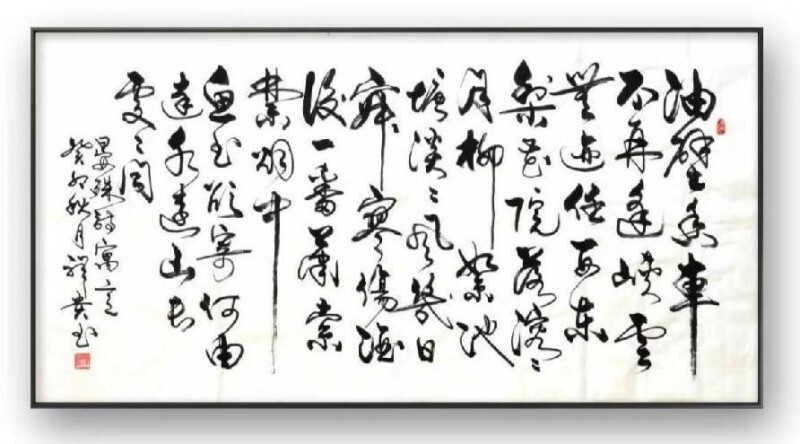 油壁香車
不再逢峽雲
無迹任西東
梨花院落溶々
月柳絮池
塘淡々風幾日
寂寥傷酒
後一番蕭索
禁烟中
魚書欲寄何由
達水遠山長
處々同
晏殊詩寓意
癸卯秋月書